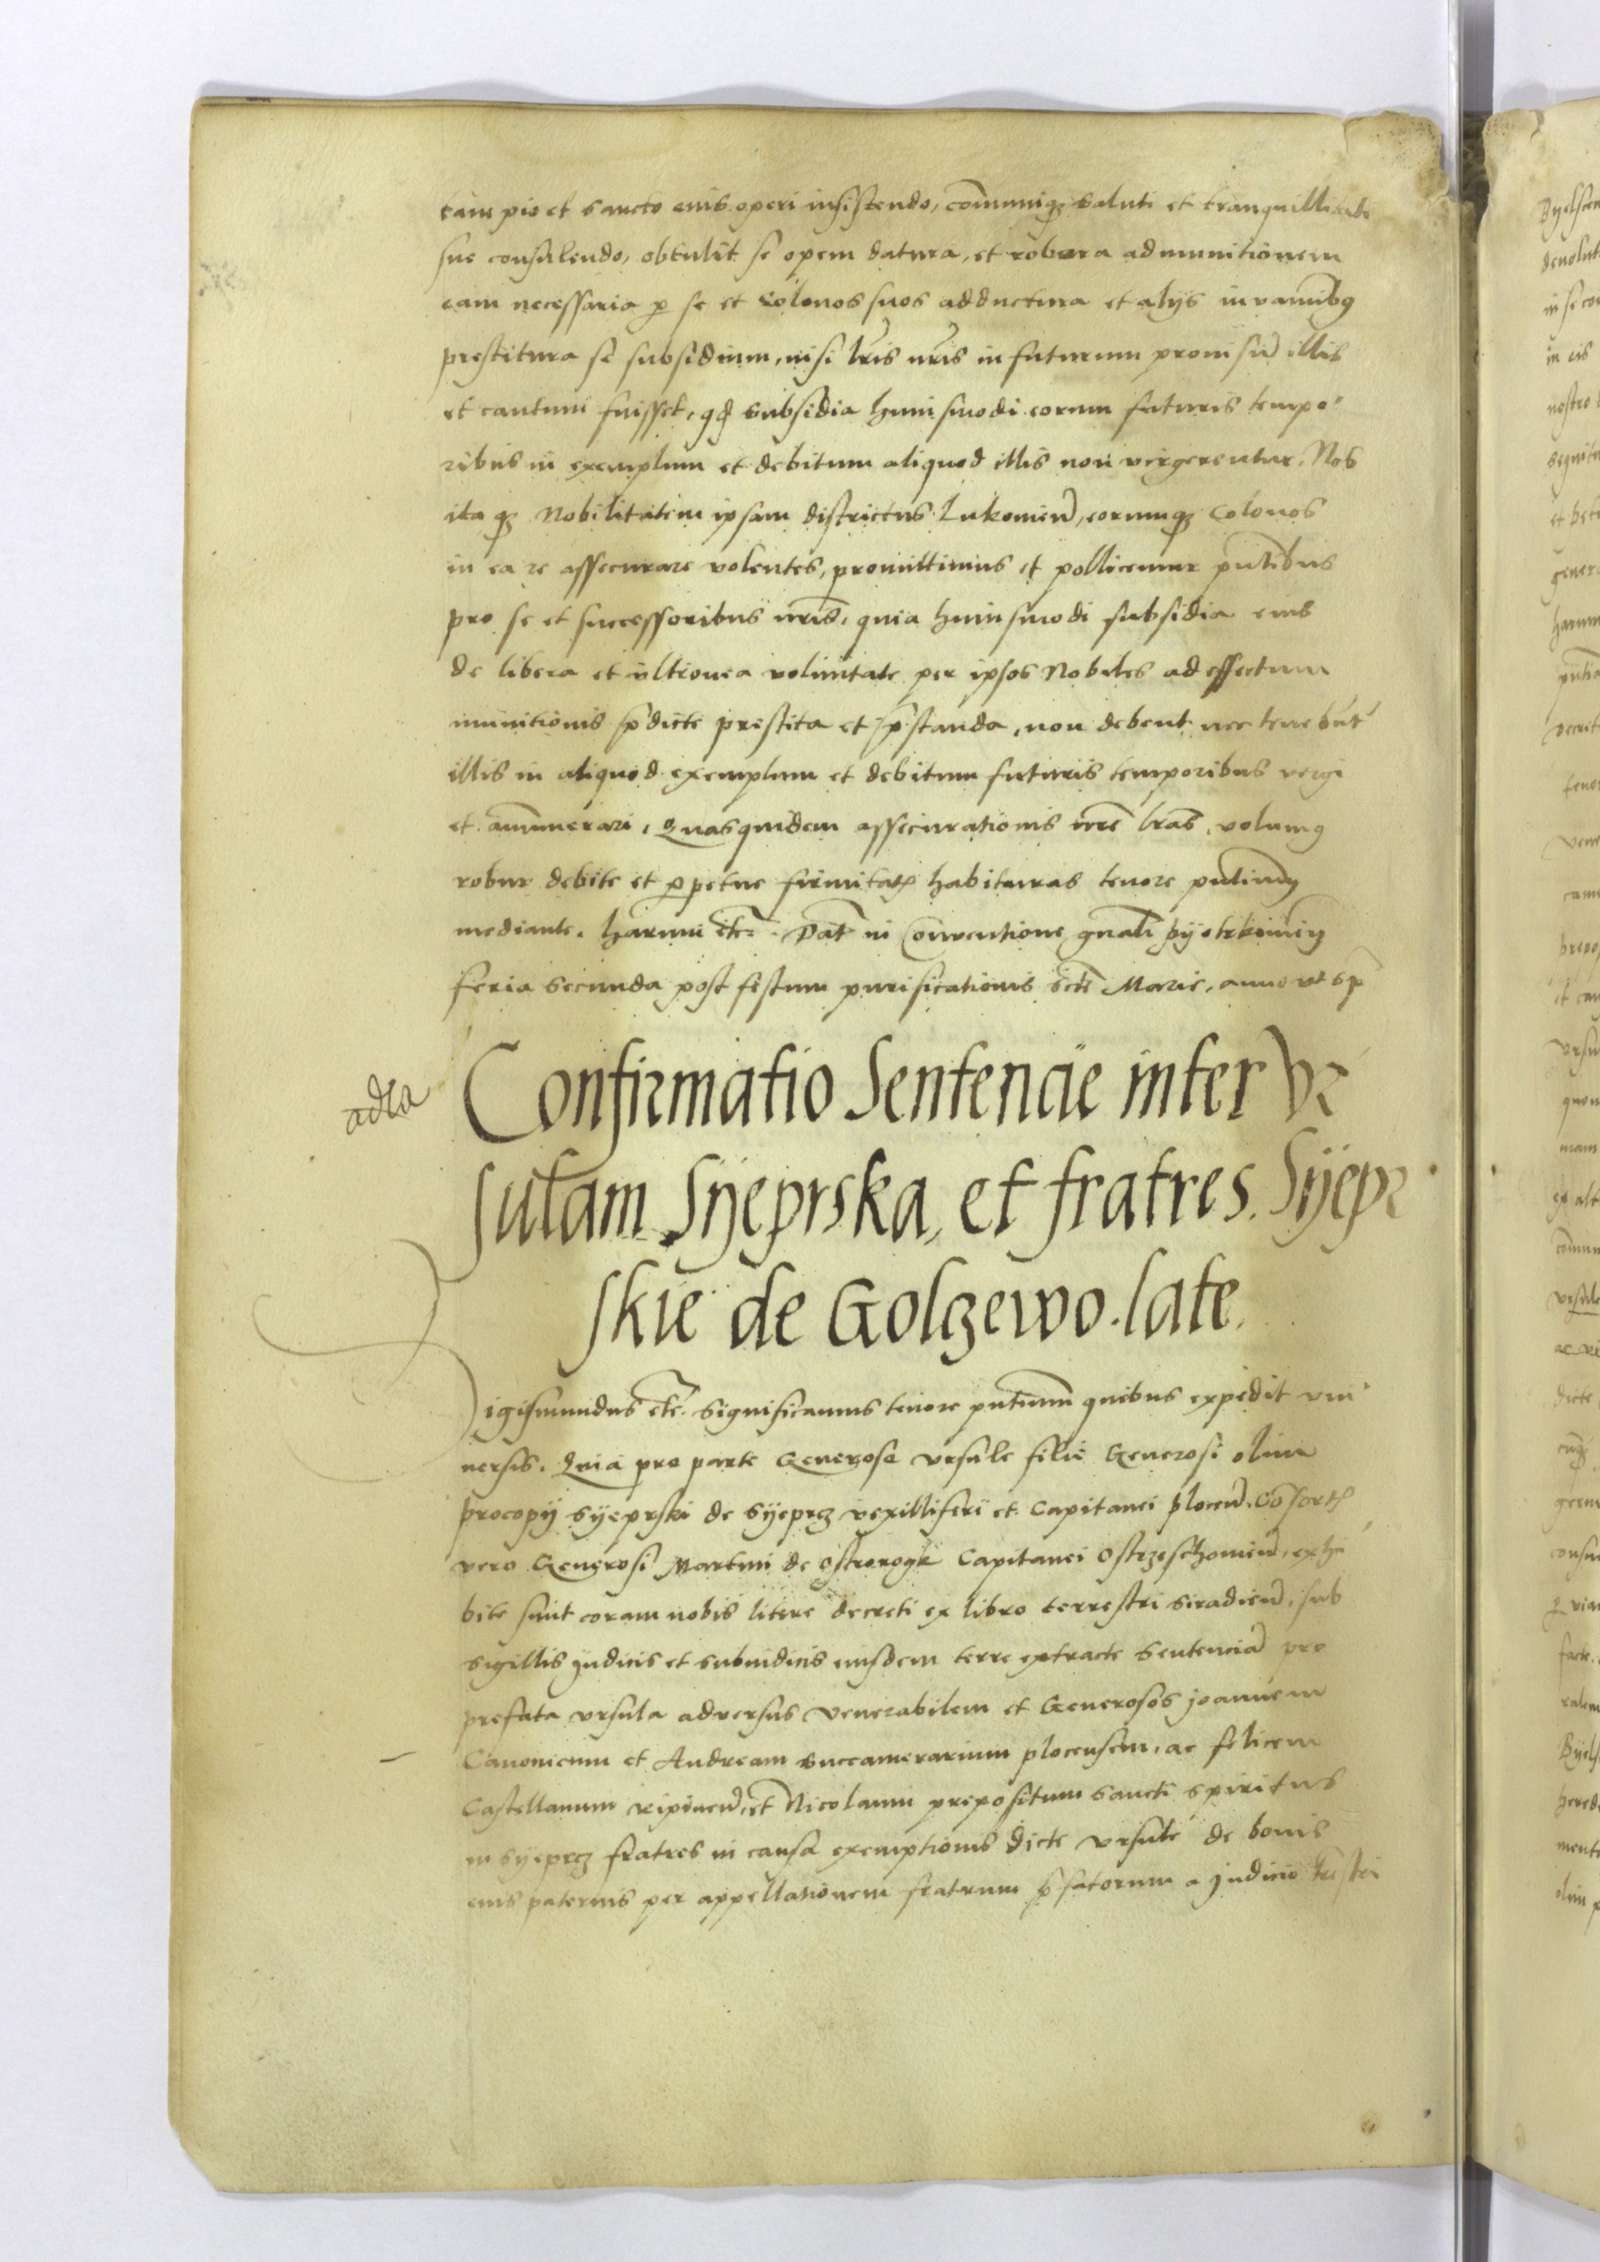 tam pio et sancto eius operi insistendo, communiq3 saluti et tranquillitati
sue consulendo, obtulit se opem datura, et robora ad munitionem
eam necessaria p se et Colonos suos adductura et alijs iuvaminibq
prestitura se subsidium, nisi lris nris in futurum provisu illis
et cautum fuisset, qd subsidia huiusmodi eorum futuris tempo
ribus in exemplum et debitum aliquod illis non vergerentur. Nos
itaq3 Nobilitatem ipsam districtus Lukovien, eorumq3 Colonos
in ea re assecurare volentes, promittimus et pollicemur pntibus
pro se et successoribus nris, quia huiusmodi subsidia eius
de libera et ultronea voluntate per ipsos Nobiles ad effectum
munitionis pdicte prestita et pstanda, non debent nec tenebut
illis in aliquod exemplum et debitum futuris temporibus vergi
et annumerari, Quasquidem assecurationis nre lras, volumq
robur debite et ppetue firmitatis habituras tenore pntium
mediante. harum etc. Dat in Conventione gnali pyotrkovien
feria secunda post festum purificationis scte Marie, anno ut sp
adta
Confirmatio Sentencie inter Vr
sulam Syeprska, et fratres Syepr
skie de Golczewo. late.
Sigismundus etc. Significamus tenore pntium quibus expedit uni
versis. Quia pro parte Generose Ursule filie Generosi olim
procopij Syeprski de Syeprcz vexilliferi et Capitanei plocen. Cosortis
vero Generosi Martini de Ostrorogk Capitanei Ostrzeschovien, exhi
bite sunt coram nobis litere decreti ex libro terrestri Siradien, sub
sigillis Judicis et subiudicis eiusdem terre extracte Sentencia pro
prefata Ursula adversus Venerabilem et Generosos Joannem
Canonicum et Andream succamerarium plocensem, ac felicem
Castellanum ripinen, et Nicolaum prepositum sancti spiritus
in Syeprcz fratres in causa exemptionis dicte Ursule de bonis
eius paternis per appellationem fratrum pfatorum a Judicio trstri